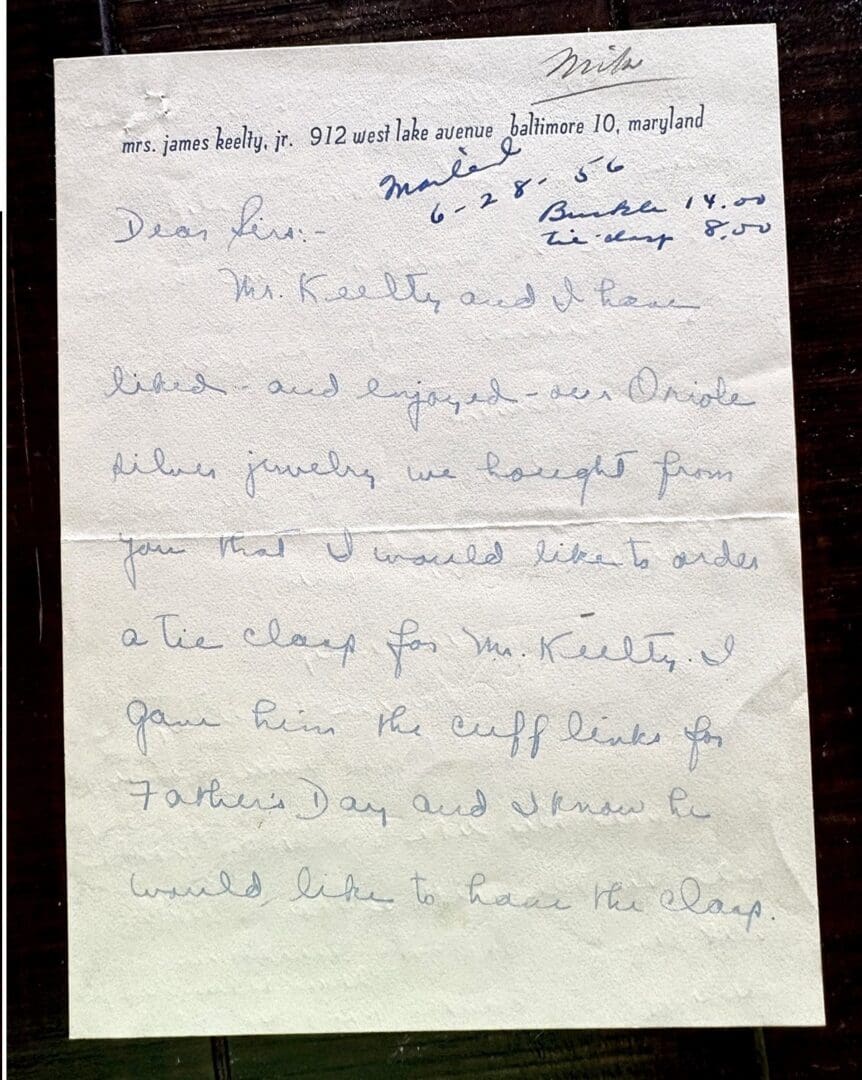 Mike
mrs. james keelty, jr. 912 west lake avenue baltimore 10, maryland
Mailed
6-28-56
Buckle 14.00
tie-clasp 8.00
Dear Sirs:-
Mr. Keelty and I have
liked - and enjoyed - our Oriole
silver jewelry we bought from
you that I would like to order
a tie clasp for Mr. Keelty. I
gave him the cuff links for
Father's Day and I know he
would like to have the clasp.